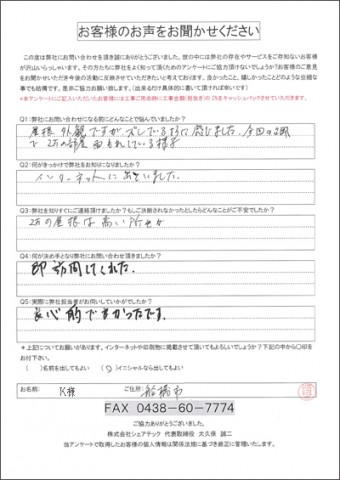 お客様のお声をお聞かせください
この度は弊社にお問い合わせを頂き誠にありがとうございます。世の中には弊社の存在やサービスをご存知ないお客様
が沢山いらっしゃいます。その方たちに弊社をよく知って頂くためのアンケートにご協力頂けないでしょうか?お客様のご意見
をお聞かせいただき今後の活動に反映させていただきたいと考えております。良かったこと、嬉しかったことどのような些細な
事でも結構です。是非ご協力お願い致します。(出来るだけ具体的に書いて頂けれは幸いです)
Q1:弊社にお問い合わせになる前にどんなことで悩んでいましたか?
屋根外観ですが、ズレている様に感じました。今回の
で2Fの部屋
Q2:何がきっかけで弊社をお知りになりましたか?
インターネットに出ていました。
Q3:弊社を知りすぐにご連絡頂けましたか?もしご決断されなかったとしたらどんなことがご不安でしたか?
2Fの屋根は高い所
Q4:何が決め手となり弊社にお問い合わせ頂きましたか?
即訪問してくれた。
Q5:実際に弊社担当者がお伺いしていかがでしたか?
良心的で
*上記についてお願いがあります。インターネットや印刷物に掲載させて頂いてもよろしいでしょうか?下記の中から〇印をお
付下さい。
( )名前を出してもよい (○)イニシャルなら出してもよい
お名前: K様 ご住所: 船橋市
FAX 0438-60-7774
ご協力ありがとうございました。
株式会社シェアテック 代表取締役 大久保 誠二
当アンケートで取得したお客様の個人情報は関係法規に基づき厳正に管理いたします。